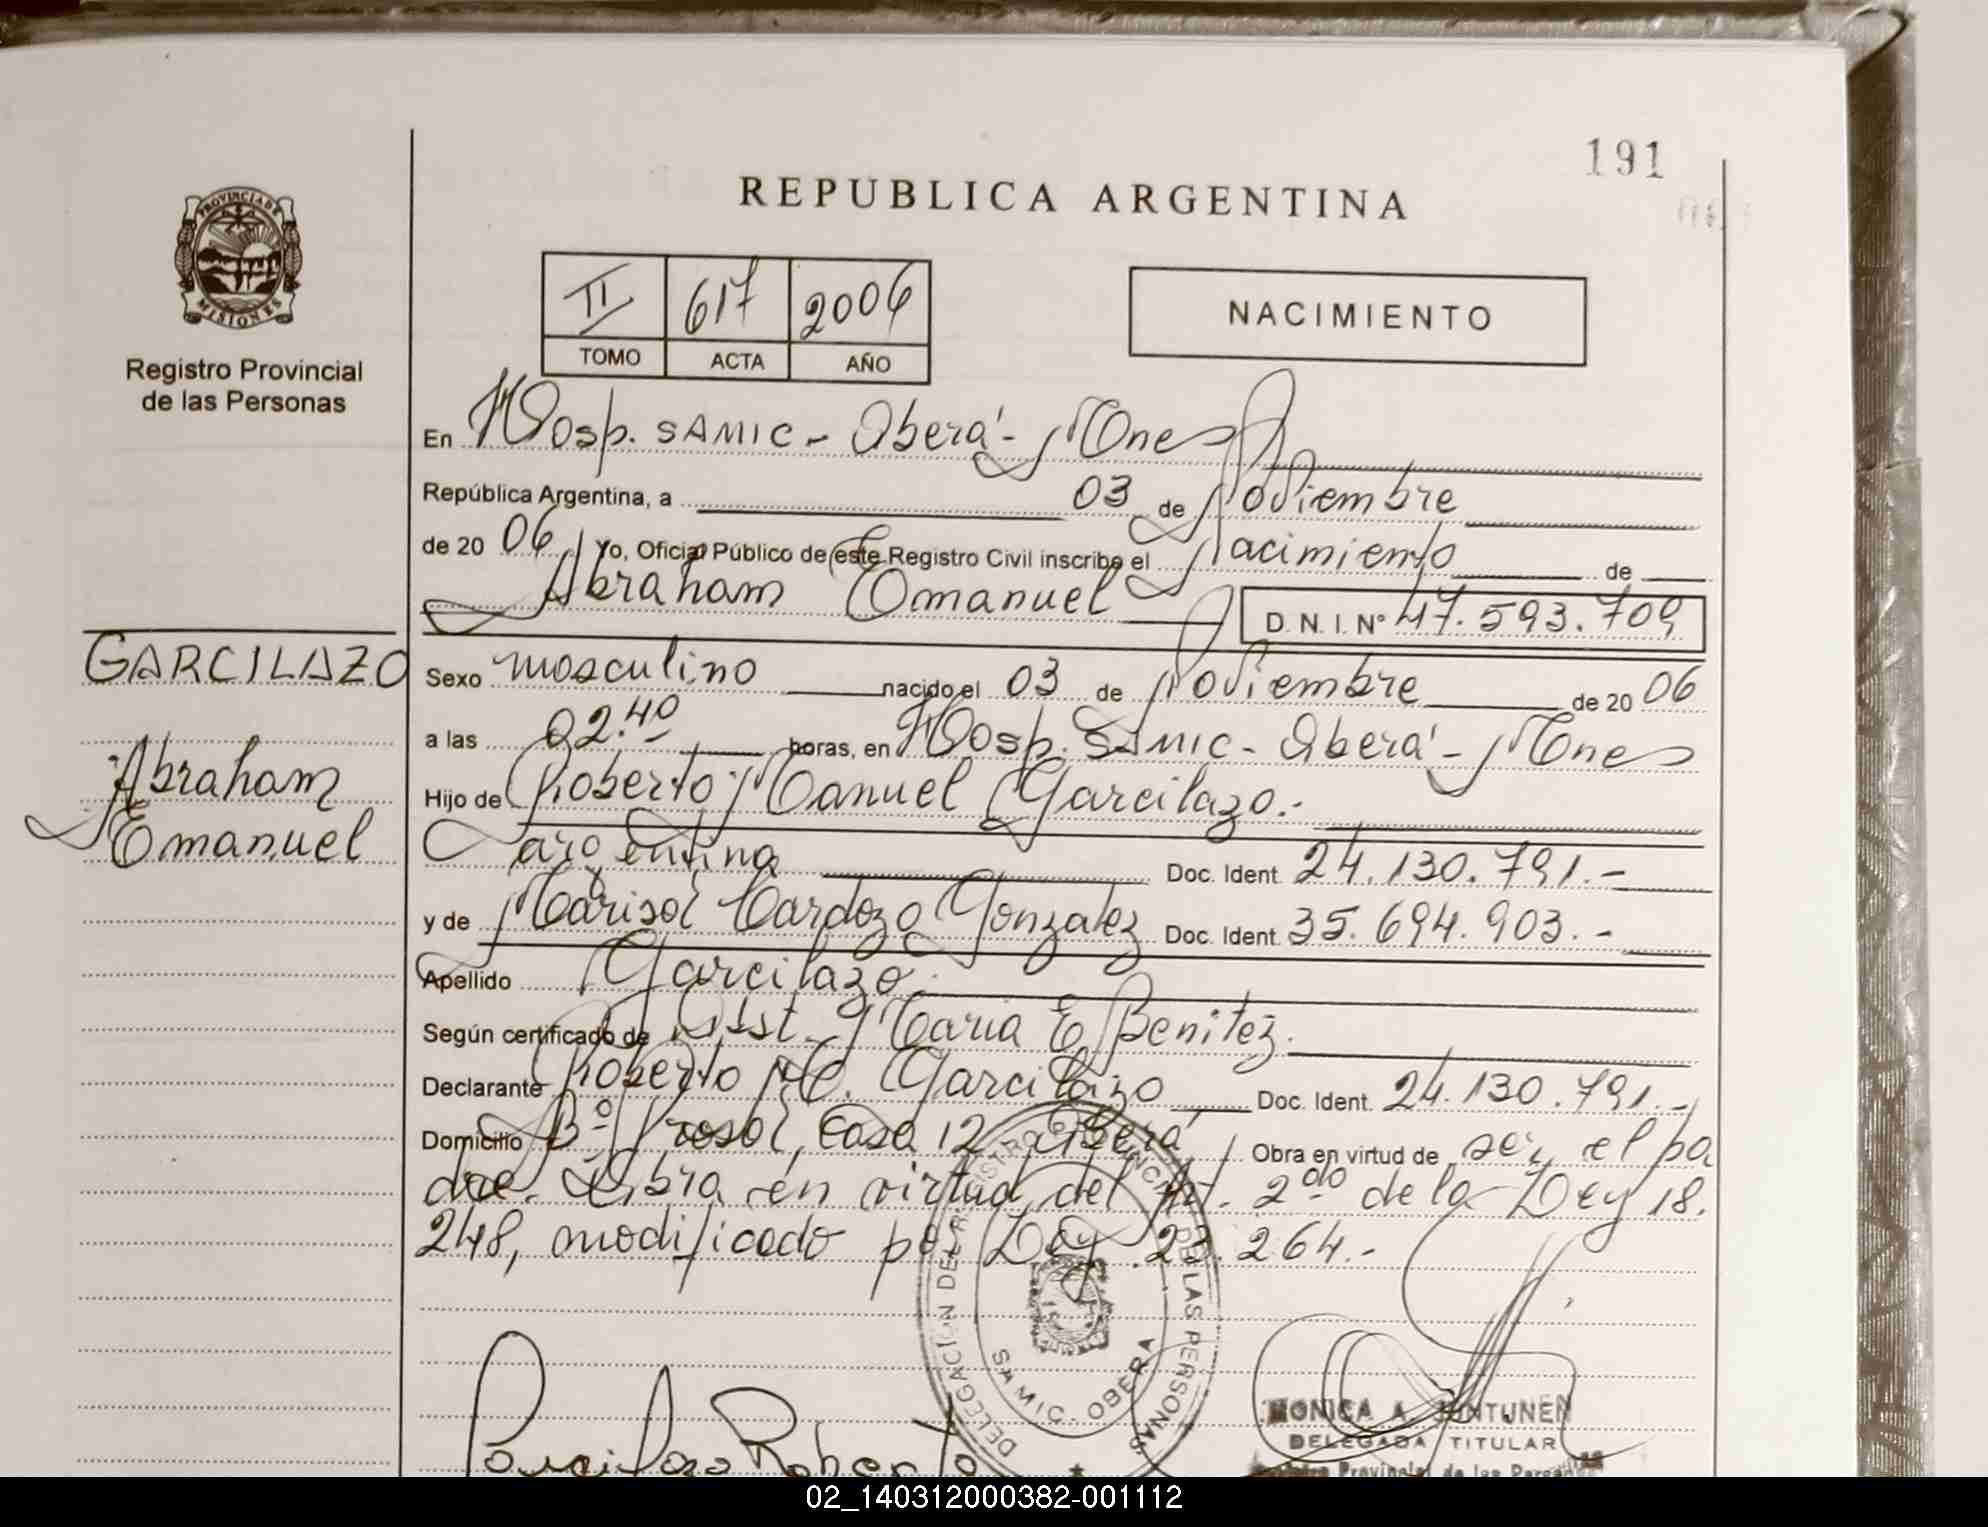 191
REPUBLICA ARGENTINA
PROVINCIA DE
MISIONES
Registro Provincial
de las Personas
II 617 2006
TOMO ACTA AÑO
NACIMIENTO
En Hosp. SAMIC - Oberá - Mnes
República Argentina, a 03 de Noviembre
de 20 06 Yo, Oficial Público de este Registro Civil inscribo el Nacimiento de
Abraham Emanuel D. N. I. N° 47.593.709
GARCILAZO
Abraham
Emanuel
Sexo masculino nacido el 03 de Noviembre de 20 06
a las 02.40 horas, en Hosp. SAMIC - Oberá - Mnes
Hijo de Roberto Manuel Garcilazo.-
argentina Doc. Ident. 24.130.791.-
y de Marisol Cardozo Gonzalez Doc. Ident. 35.694.903.-
Apellido Garcilazo.
Según certificado de Obst. Maria E Benitez.
Declarante Roberto M. Garcilazo Doc. Ident. 24.130.791.-
Domicilio B° Prosol, Casa 12 Oberá Obra en virtud de ser el pa
dre. Libra en virtud del Art. 2do de la Ley 18.
248, modificado por Ley 23.264.-
DELEGACION DEL REGISTRO PROVINCIAL DE LAS PERSONAS
SAMIC. OBERA
Garcilazo Roberto
MONICA A. JUNTUNEN
DELEGADA TITULAR
Registro Provincial de las Personas
02_140312000382-001112